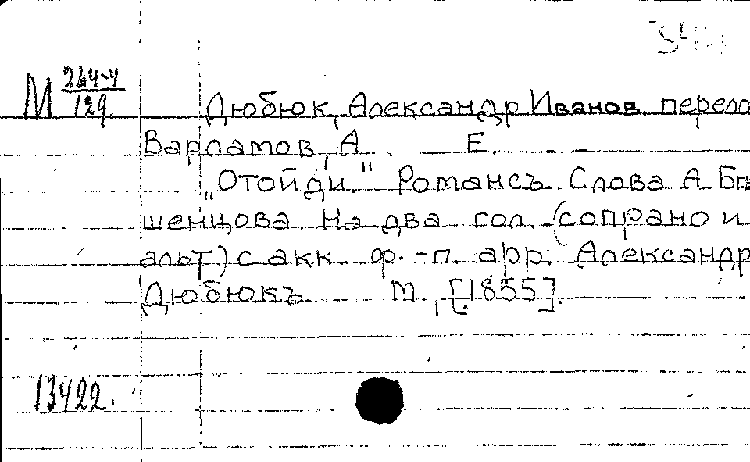 М 264-4/129
Дюбюк, Александр Иванов. перело
Варламов, А. Е.
"Отойди" Романсъ. Слова А. Би
шенцова На два гол. (сопрано и
альт) с акк. ф.-п. арр. Александр
Дюбюкъ. М., [1855].
13422.